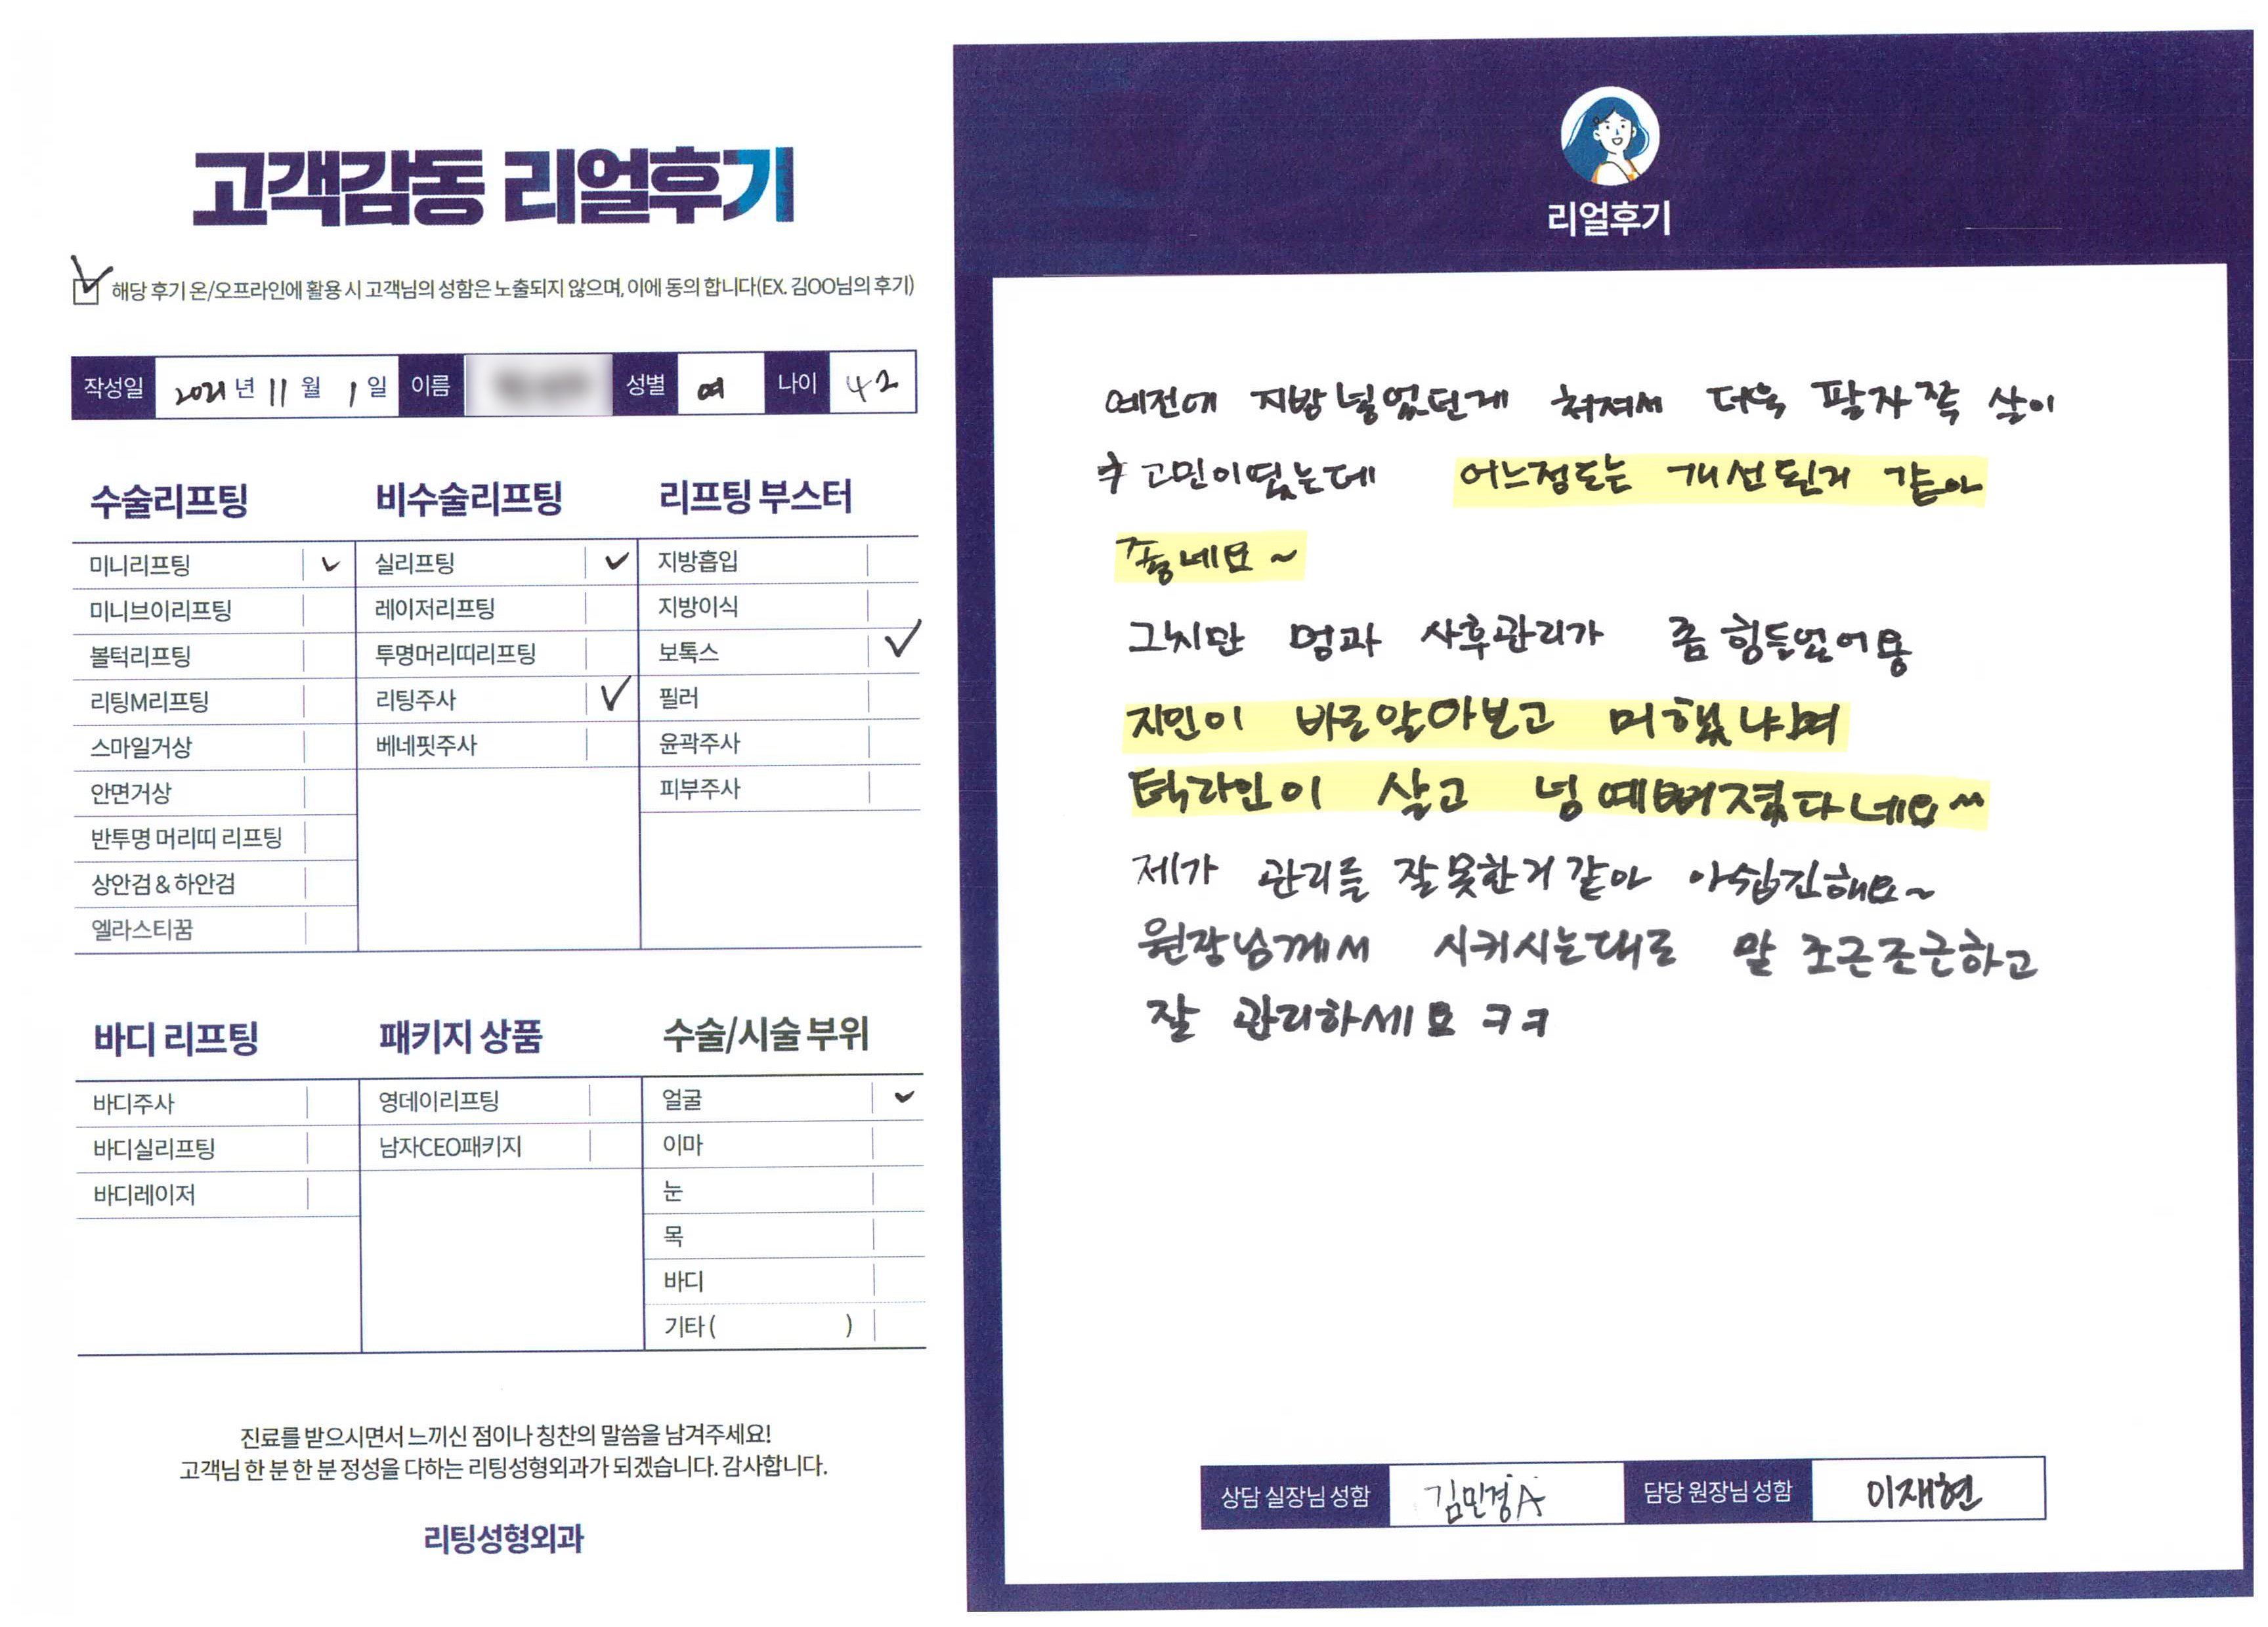 고객감동 리얼후기
해당 후기 온/오프라인에 활용 시 고객님의 성함은 노출되지 않으며, 이에 동의 합니다(EX. 김OO님의 후기)
작성일 2021년 11월 1일 이름 성별 여 나이 42
수술리프팅
미니리프팅
미니브이리프팅
볼턱리프팅
리팅M리프팅
스마일거상
안면거상
반투명 머리띠 리프팅
상안검 & 하안검
엘라스티꿈
비수술리프팅
실리프팅
레이저리프팅
투명머리띠리프팅
리팅주사
베네핏주사
리프팅 부스터
지방흡입
지방이식
보톡스
필러
윤곽주사
피부주사
바디 리프팅
바디주사
바디실리프팅
바디레이저
패키지 상품
영데이리프팅
남자CEO패키지
수술/시술 부위
얼굴
이마
눈
목
바디
기타 ( )
진료를 받으시면서 느끼신 점이나 칭찬의 말씀을 남겨주세요!
고객님 한 분 한 분 정성을 다하는 리팅성형외과가 되겠습니다. 감사합니다.
리팅성형외과
리얼후기
예전에 지방 넣었던게 쳐져서 더욱 팔자쪽 살이
고민이였는데 어느정도는 개선된거 같아
좋네요~
그치만 멍과 사후관리가 좀 힘들었어용
지인이 바로알아보고 머했냐며
턱라인이 살고 넘 예뻐졌다네요^^
제가 관리를 잘못한거같아 아쉽긴해요~
원장님께서 시키시는대로 말 조근조근하고
잘 관리하세요 ㅋㅋ
상담 실장님 성함 김민경A 담당 원장님 성함 이재현